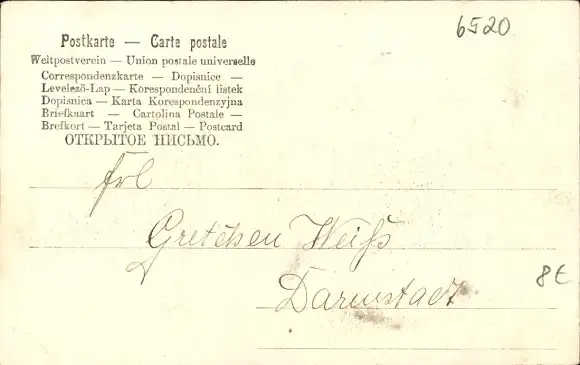 6520
Postkarte — Carte postale
Weltpostverein — Union postale universelle
Correspondenzkarte — Dopisnice —
Levelező-Lap — Korespondenční listek
Dopisnica — Karta Korespondenzyjna
Briefkaart — Cartolina Postale —
Brefkort — Tarjeta Postal — Postcard
ОТКРЫТОЕ ПИСЬМО.
Frl
Gretchen Weiß
Darmstadt
8€